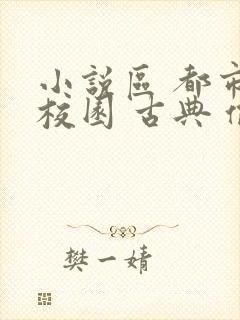 小說區 都市
校園 古典
樊一婧